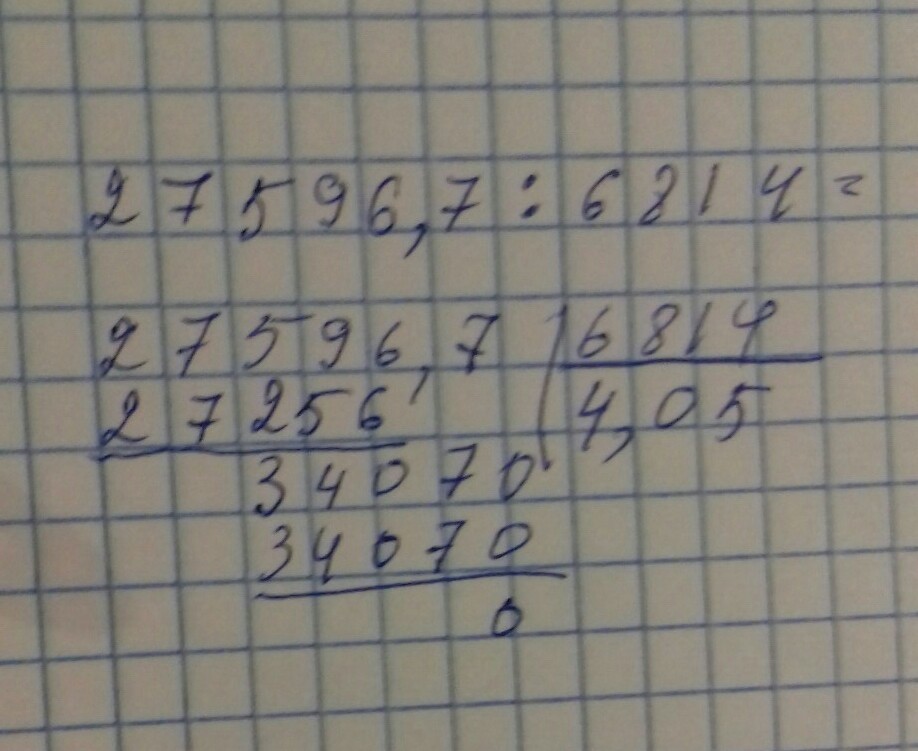 27596,7:6814=
27596,7 6814
27256 4,05
34070
34070
0